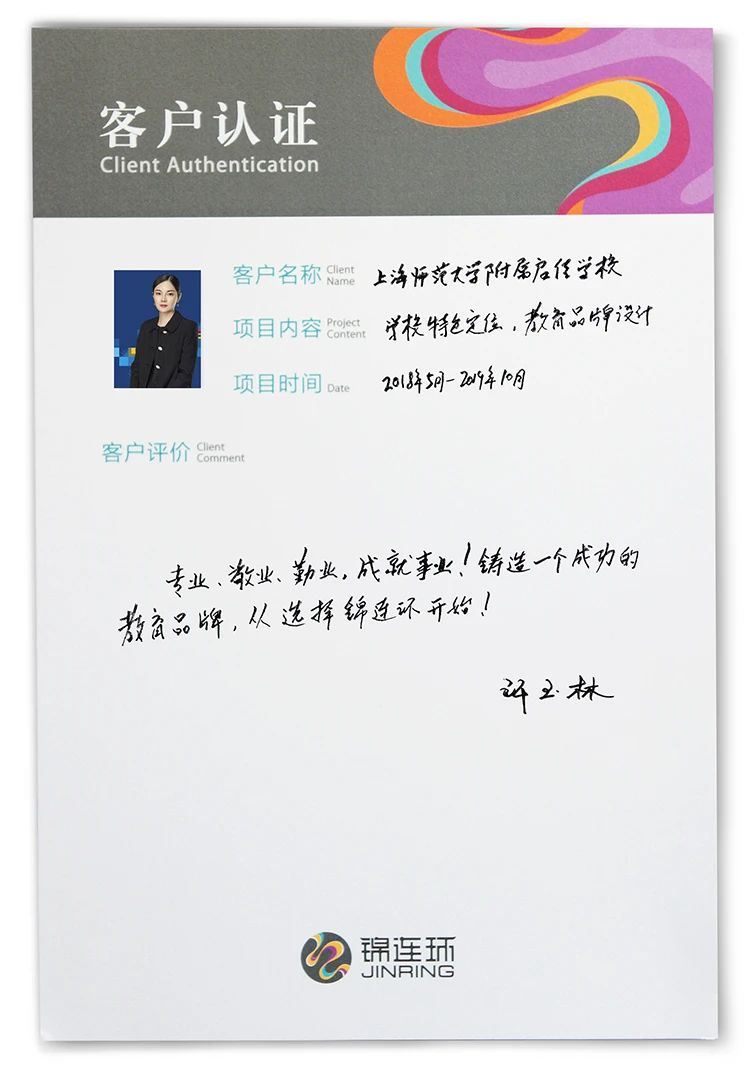 客户认证
Client Authentication
客户名称 Client Name 上海师范大学附属启佳学校
项目内容 Project Content 学校特色定位，教育品牌设计
项目时间 Date 2018年5月-2019年10月
客户评价 Client Comment
专业、敬业、勤业，成就事业！铸造一个成功的
教育品牌，从选择锦连环开始！
许玉林
锦连环
JINRING